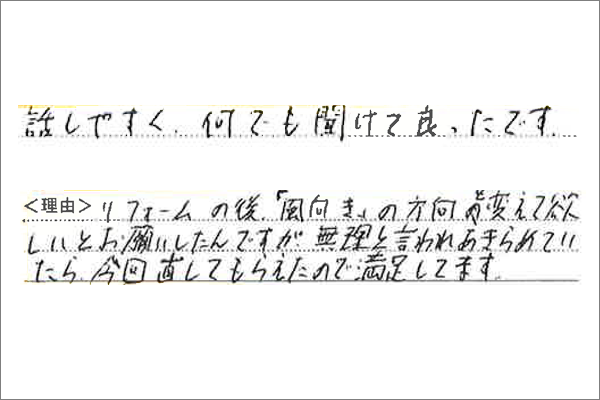 話しやすく、何でも聞けて良かったです。
<理由>リフォームの後、「風向き」の方向を変えて欲
しいとお願いしたんですが無理と言われあきらめてい
たら、今回直してもらえたので満足してます。